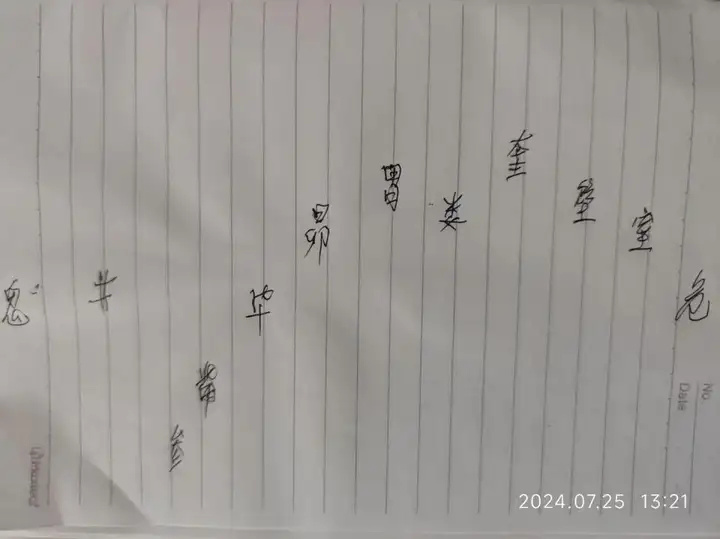 鬼
井
参
觜
毕
昴
胃
娄
奎
壁
室
危
No.
Date
2024.07.25 13:21